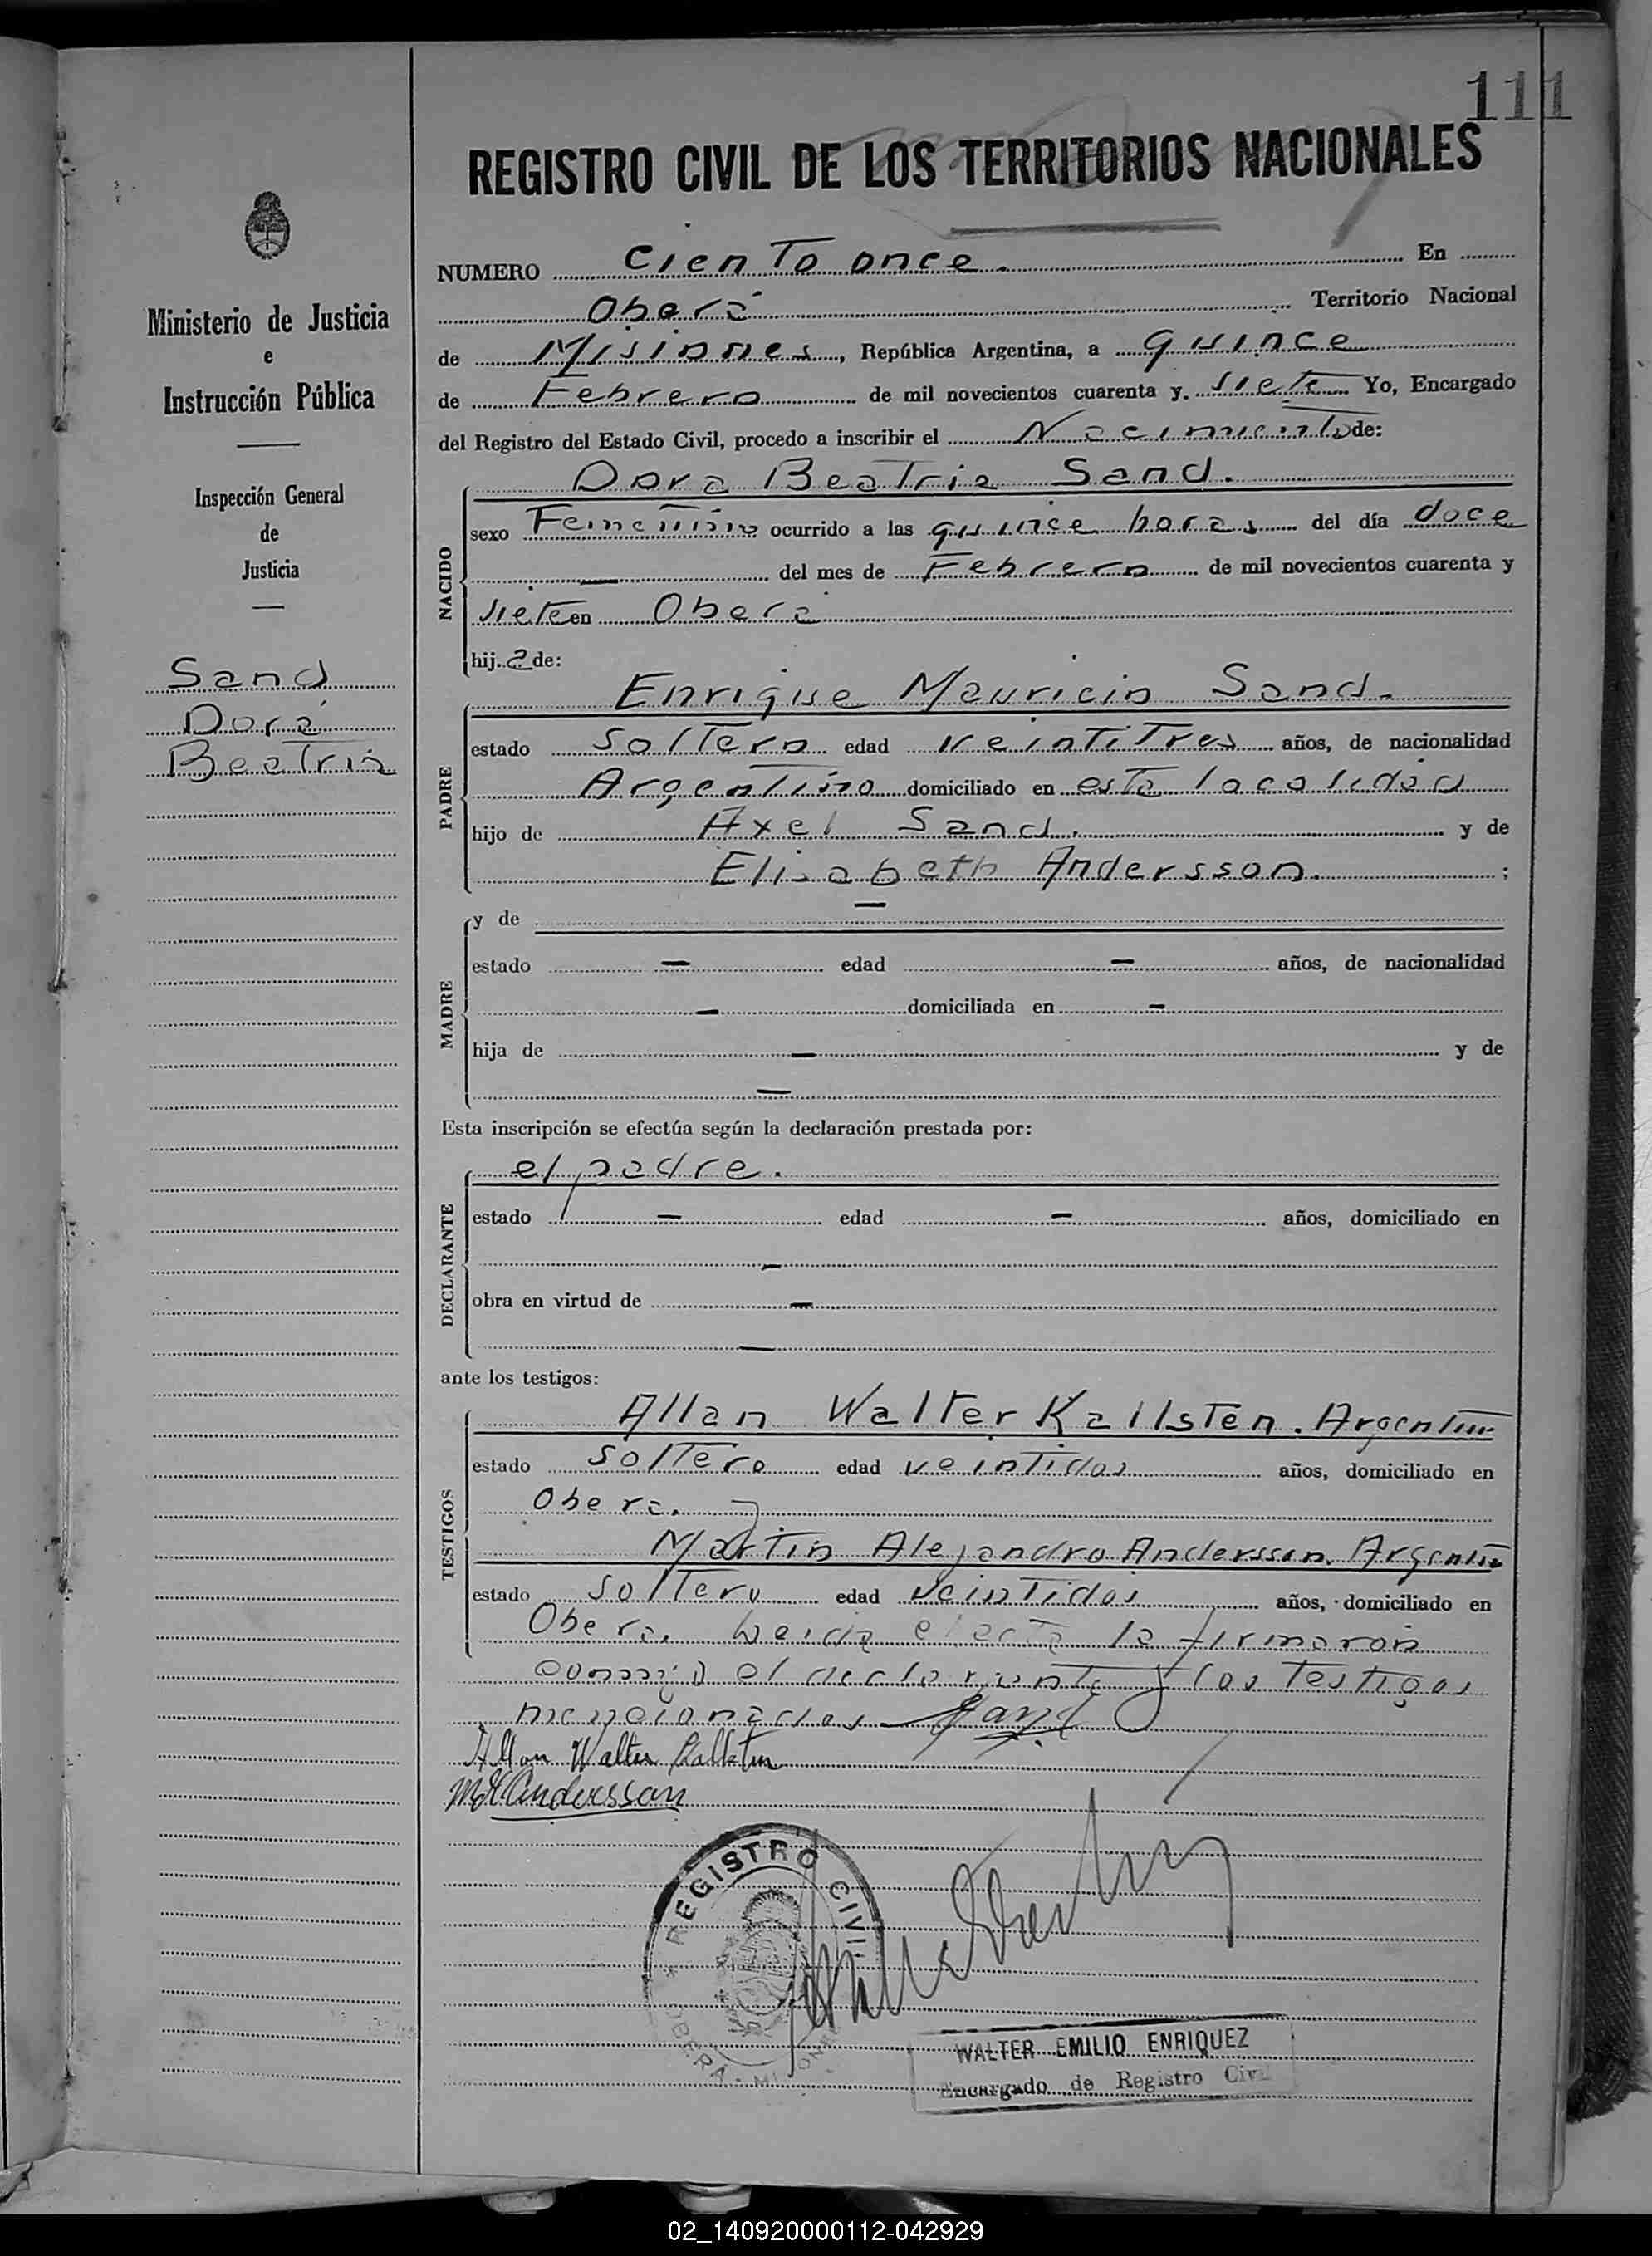 111
REGISTRO CIVIL DE LOS TERRITORIOS NACIONALES
Ministerio de Justicia
e
Instrucción Pública
Inspección General
de
Justicia
Sand
Dora
Beatris
NUMERO Ciento once. En
Oberá Territorio Nacional
de Misiones, República Argentina, a quince
de Febrero de mil novecientos cuarenta y siete Yo, Encargado
del Registro del Estado Civil, procedo a inscribir el Nacimiento de:
NACIDO
Dora Beatris Sand.
sexo Femenino ocurrido a las quince horas del día doce
— del mes de Febrero de mil novecientos cuarenta y
siete en Oberá
hija de:
PADRE
Enrique Mauricio Sand.
estado Soltero edad veintitres años, de nacionalidad
Argentino domiciliado en esta localidad
hijo de Axel Sand. y de
Elisabeth Andersson. ;
MADRE
y de —
estado — edad — años, de nacionalidad
— domiciliada en —
hija de — y de
—
Esta inscripción se efectúa según la declaración prestada por:
DECLARANTE
el padre.
estado — edad — años, domiciliado en
—
obra en virtud de —
—
ante los testigos:
TESTIGOS
Allan Walter Kallsten. Argentino
estado Soltero edad veintidos años, domiciliado en
Oberá. y
Martin Alejandro Andersson. Argentino
estado soltero edad veintidos años, domiciliado en
Oberá. Leida el acta la firmaron
conmigo el declarante y los testigos
mencionados Sand
Allan Walter Kallsten
M A Andersson
REGISTRO CIVIL
OBERA - MISIONES
WALTER EMILIO ENRIQUEZ
Encargado de Registro Civil
02_140920000112-042929